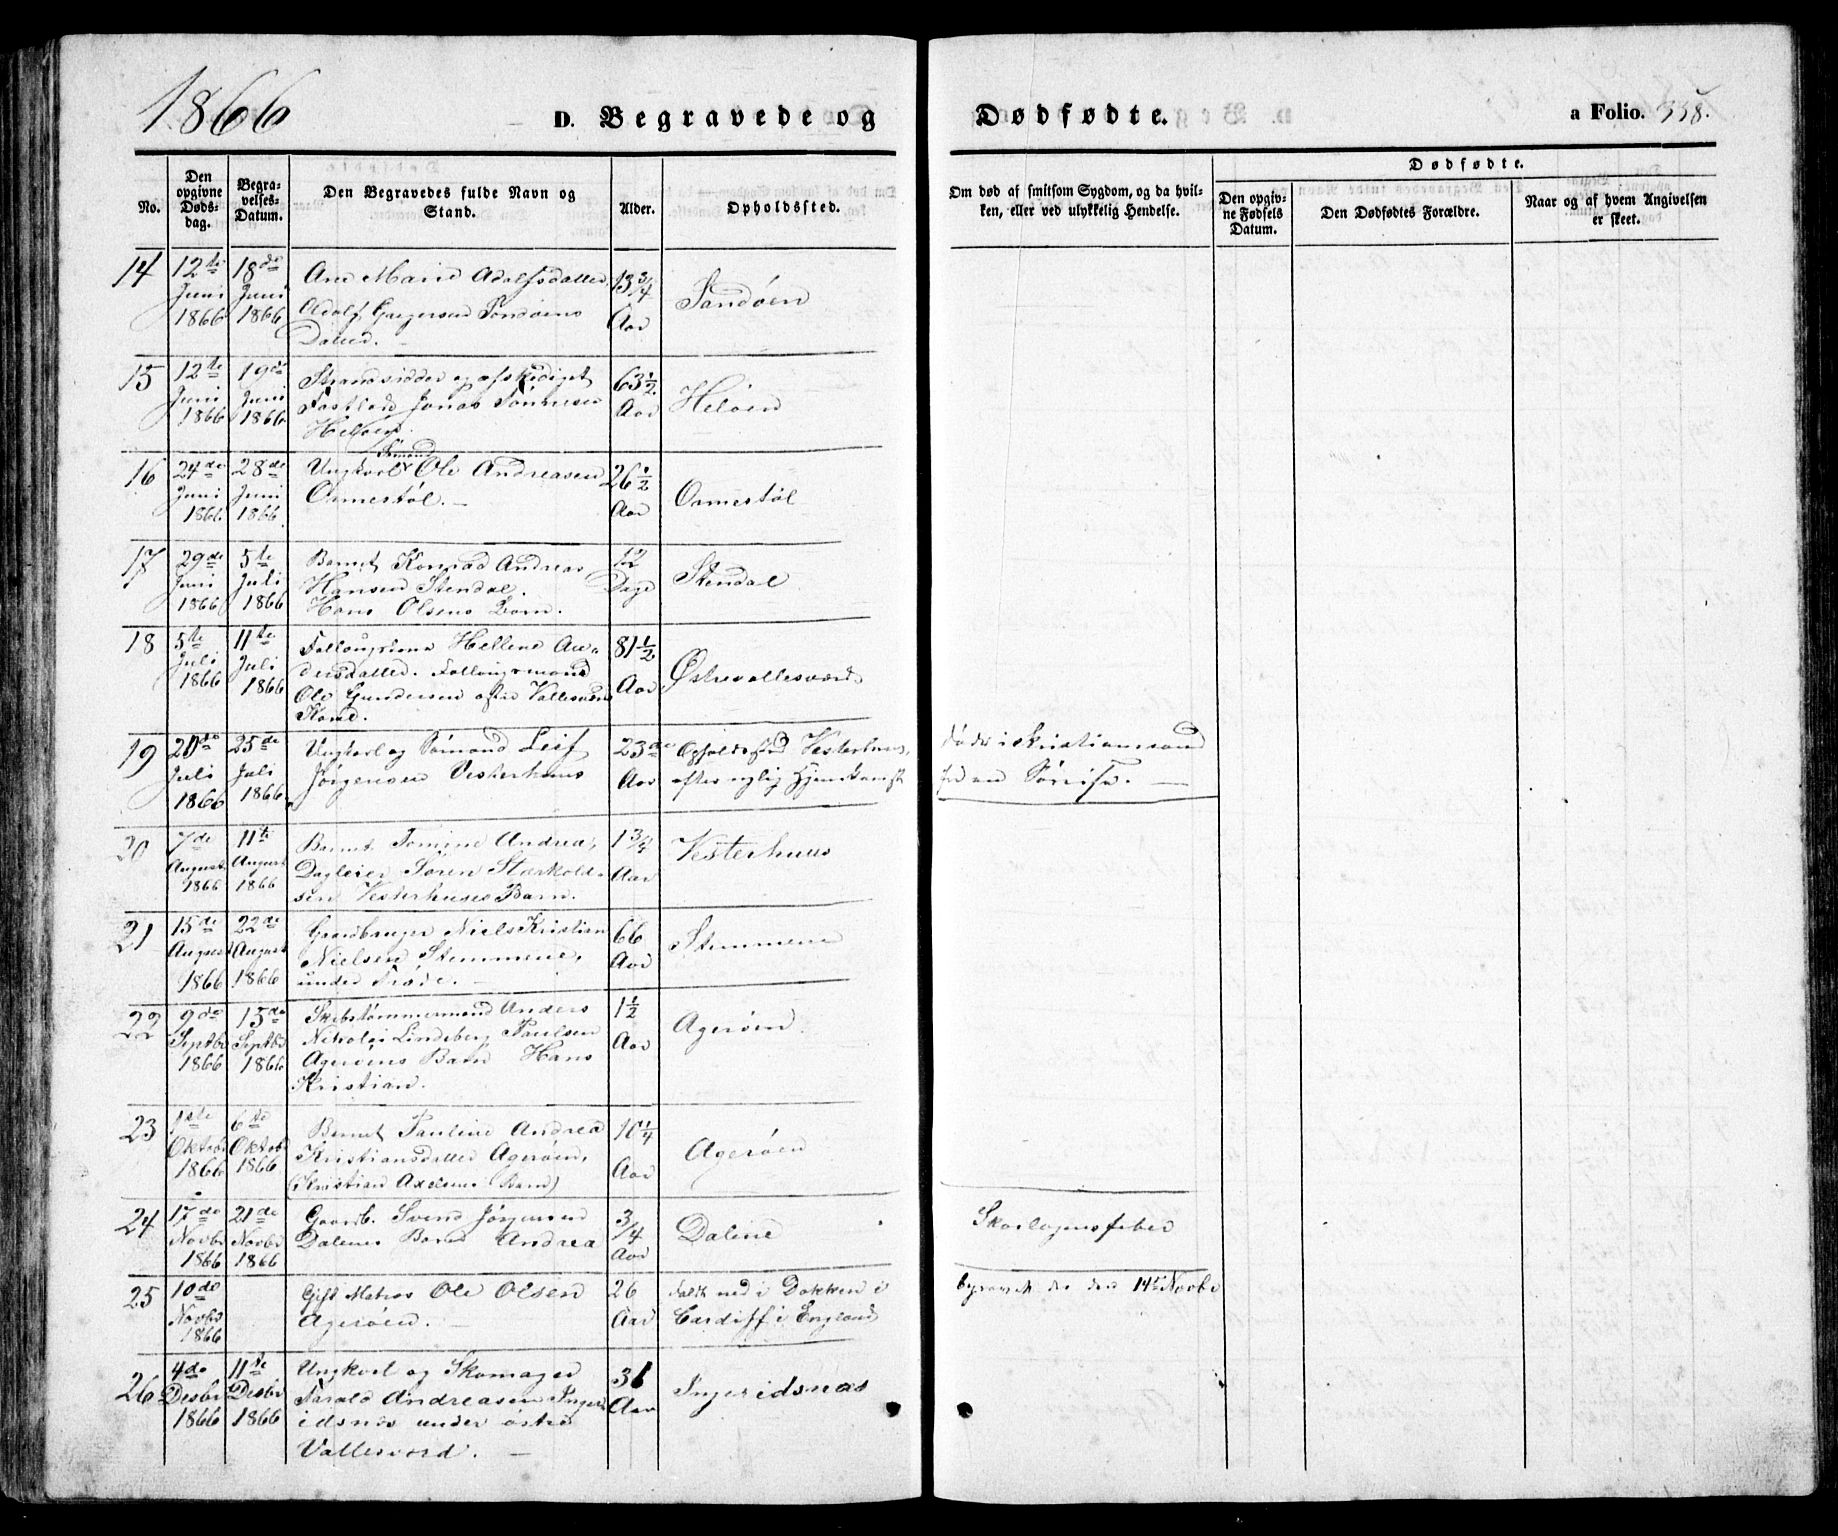 1866
D. Begravede og Dødfødte.
a Folio. 338.
No.
Den opgivne Dødsdag.
Begravelses-Datum.
Den Begravedes fulde Navn og Stand.
Alder.
Opholdssted.
Om død af smitsom Sygdom, og da hvilken, eller ved ulykkelig Hendelse.
Dødfødte.
Den opgivne Fødsels Datum.
Den Dødfødtes Forældre.
Naar og af hvem Angivelsen er skeet.
14
12te Juni 1866
18de Juni 1866
Ane Marie Adolfsdatter,
Adolf Gregersen Sandøens
Datter.
13 3/4 Aar
Sandøen
15
12te Juni 1866
19de Juni 1866
Strandsidder og afskediget
Jonas Tønnesen
Heløen.
63 1/2 Aar
Heløen
16
24de Juni 1866
28de Juni 1866
Sømand
Ungkarl Ole Andreasen
Ormestøl.
26 1/2 Aar
Ormestøl
17
29de Juni 1866
5te Juli 1866
Barnet Konrad Andreas
Hansen Stendal.
Hans Olsens Barn.
12 Dage
Stendal
18
5te Juli 1866
11te Juli 1866
Hellene An-
dersdatter.
Ole Gundersen østre Vallesværds
Kone.
81 1/2 Aar
Østrevallesværd
19
20de Juli 1866
25de Juli 1866
Ungkarl og Sømand Leif
Jørgensen Vesterhuus
23de Aar
Opholdssted Vesterhuus,
efter nylig Hjemkomst
døde i Kristianssand
20
7de August 1866
11te August 1866
Barnet Tomine Andrea,
Dagleier Søren Stærkold-
sen Vesterhuses Barn.
1 3/4 Aar
Vesterhuus
21
15de August 1866
22de August 1866
Gaardbruger Niels Kristian
Nielsen Stemmene,
under
66 Aar
Stemmene
22
9de Septbr 1866
15de Septbr 1866
Skibstømmermand Anders
Nikolai Lindeberg Paulsen
Agerøens Barn Hans
Kristian.
1 1/2 Aar
Agerøen.
23
1ste Oktobr 1866
6te Oktobr 1866
Barnet Pauline Andrea
Kristiansdatter Agerøen,
(Christian Axelsens Barn)
10 1/4 Aar
Agerøen
24
17de Novbr 1866
21de Novbr 1866
Gaardb. Svend Jørgensen
Dalenes Barn Andrea
3/4 Aar
Dalene
Skarlagensfeber
25
10de Novbr 1866
Gift Matros Ole Olsen
Agerøen.
26 Aar
faldt ned i Dokken i
Cardiff i England
begravet der den 14de Novbr
26
4de Desbr 1866
11te Desbr 1866
Ungkarl og Skomager
Harald Andreasen Inger-
idsnæs under østre
Vallesværd.
31 Aar
Ingeridsnæs